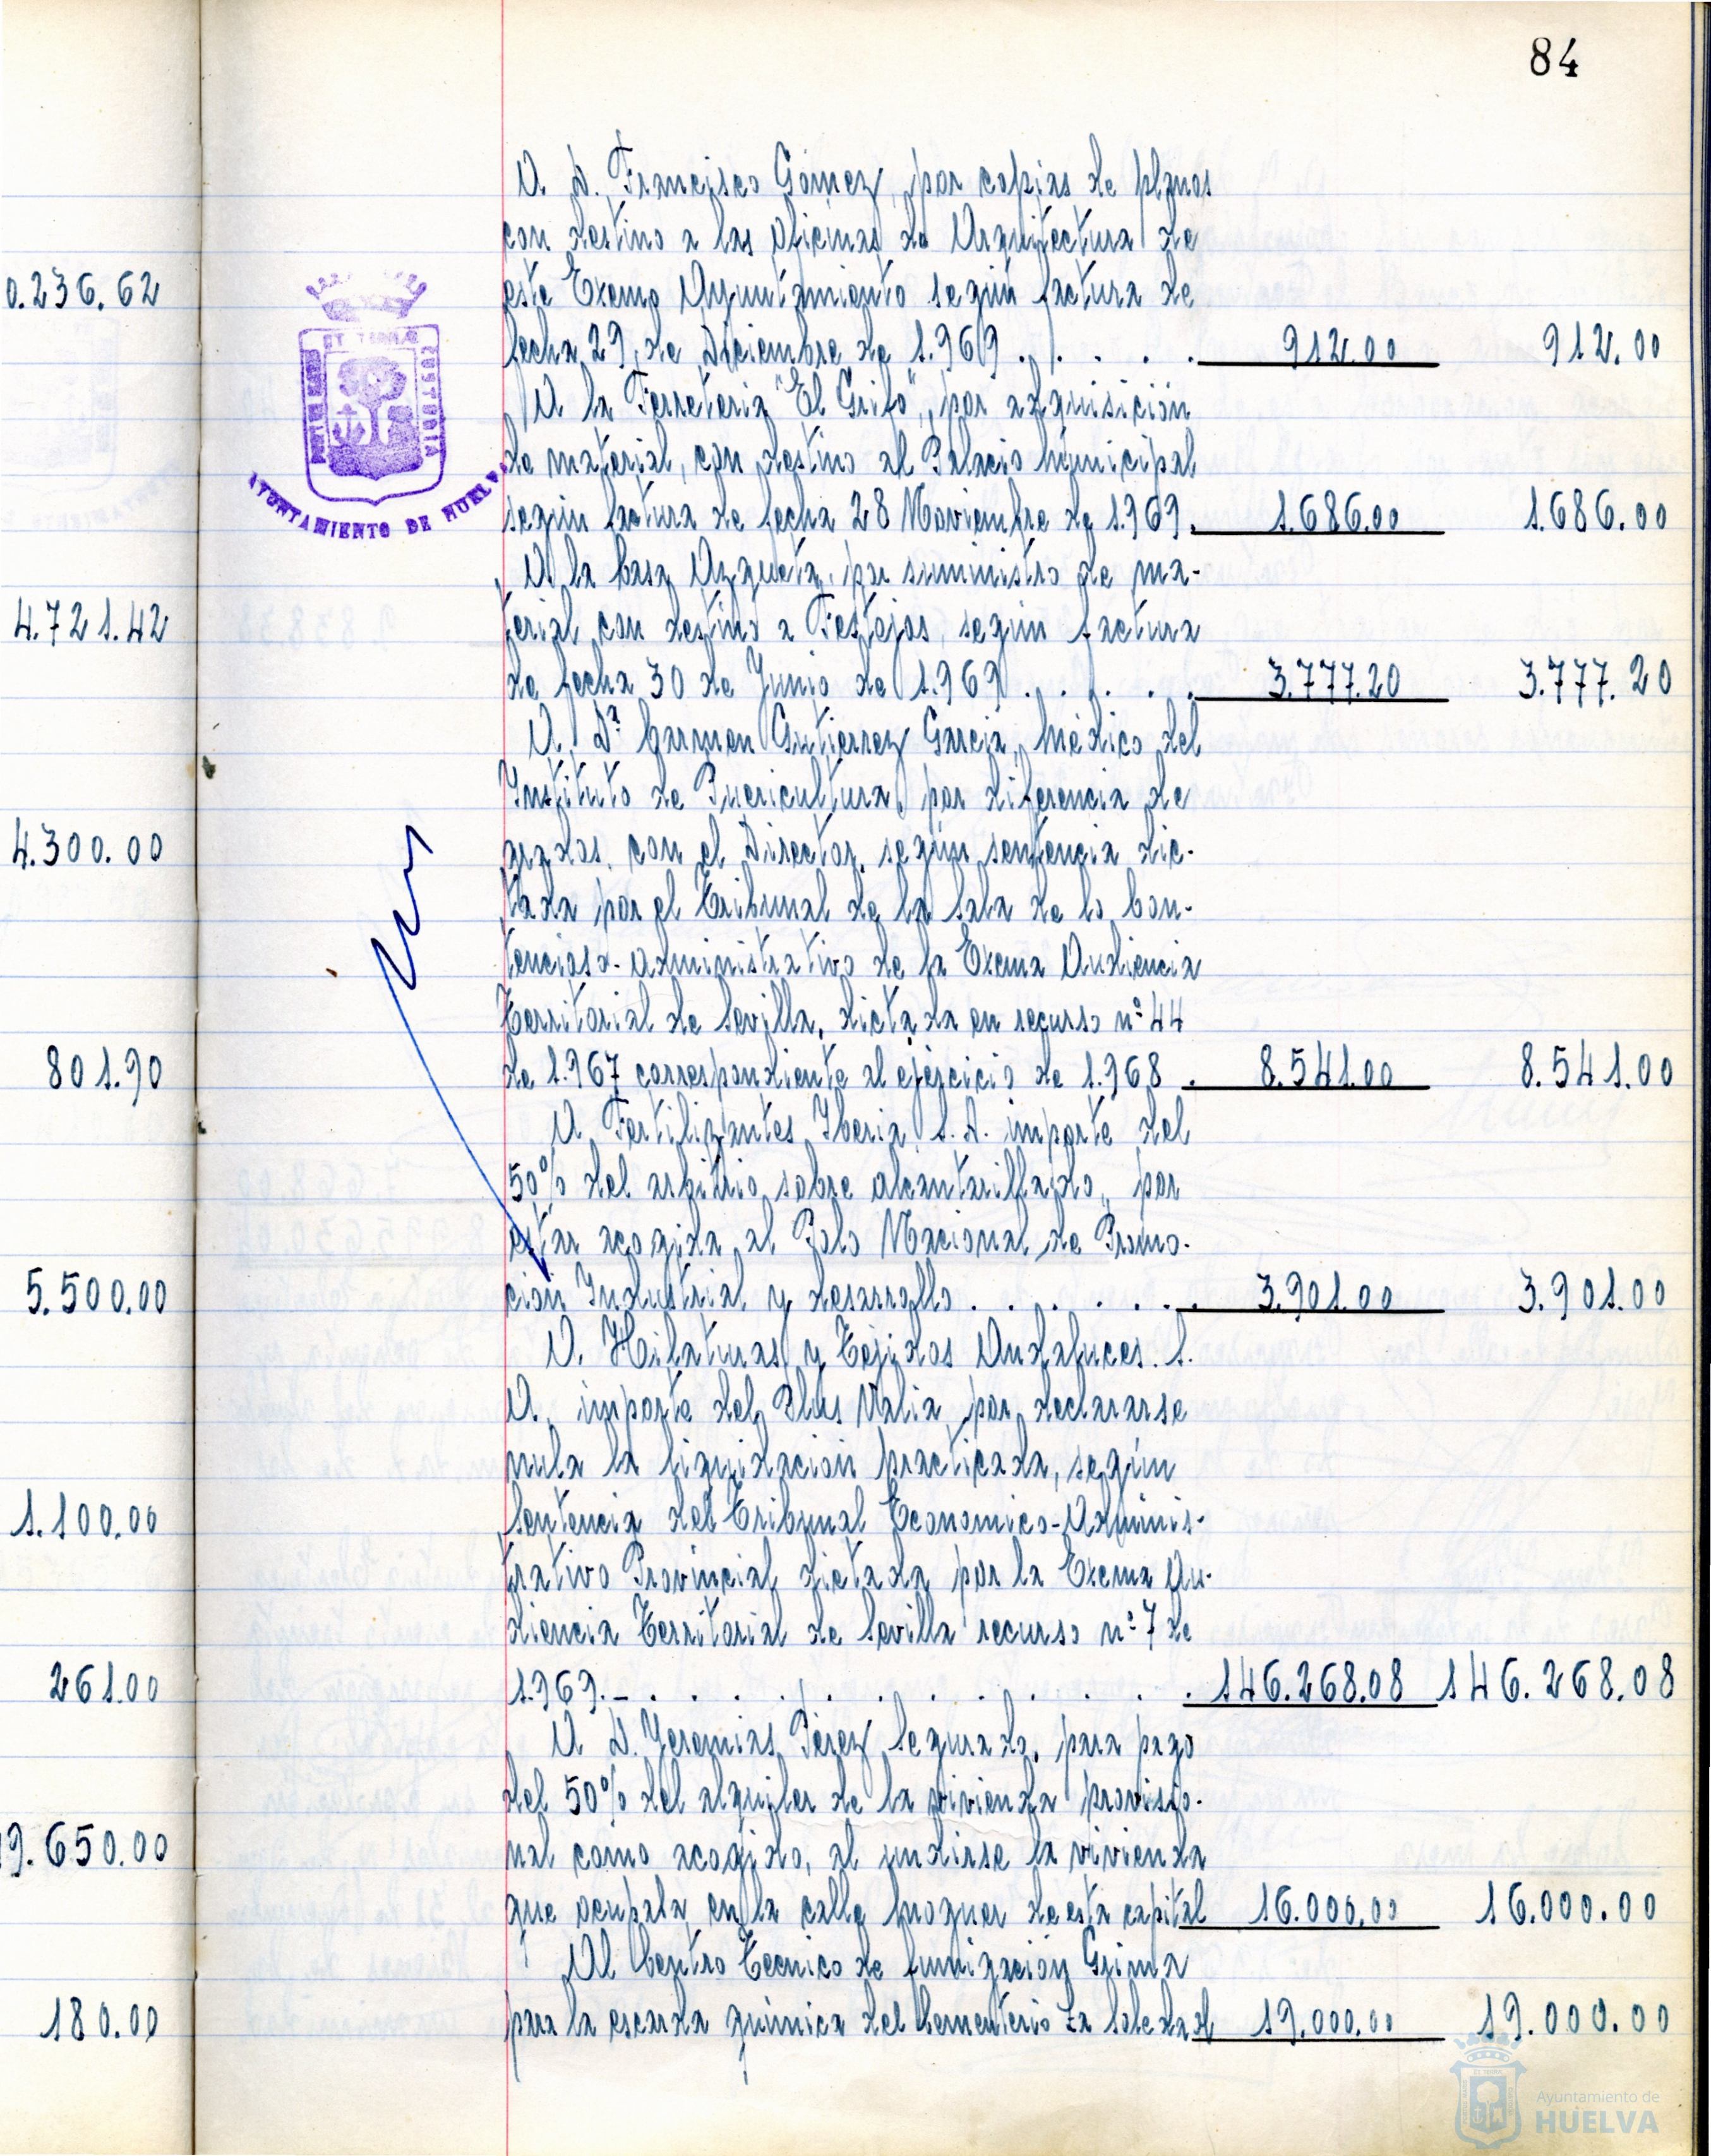 84
A D. Francisco Gómez, por copias de planos
con destino a las oficinas de Arquitectura de
este Excmo Ayuntamiento según factura de
fecha 29, de Diciembre de 1.969 . . . . . 912.00 912.00
A la Ferreteria "El Grifo", por adquisición
de material, con destino al Palacio Municipal
según factura de fecha 28 Noviembre de 1.969. 1.686.00 1.686.00
A la Casa Azqueta, por suministro de ma-
terial con destino a Festejos, según factura
de fecha 30 de Junio de 1.969 . . . . . 3.777.20 3.777.20
A Dª Carmen Gutierrez Garcia, Médico del
Instituto de Puericultura, por diferencia de
grados, con el Director, según sentencia dic-
tada por el Tribunal de la Sala de lo Con-
tencioso-administrativo de la Excma Audiencia
Territorial de Sevilla, dictada en recurso nº 44
de 1.967 correspondiente al ejercicio de 1.968 . 8.541.00 8.541.00
A Fertilizantes Iberia, S.A. importe del
50% del arbitrio sobre alcantarillado, por
estar acogida al Polo Nacional de Promo-
ción Industrial y desarrollo . . . . . . 3.901.00 3.901.00
A. Hilaturas y Tejidos Andaluces. S.
A. importe del Plus Valia, por declararse
nula la liquidación practicada, según
Sentencia del Tribunal Economico-Adminis-
trativo Provincial dictada por la Excma Au-
diencia Territorial de Sevilla recurso nº 7 de
1.969.- . . . . . . . . . . 146.268.08 146.268.08
A D. Jeremias Pérez Segurado, para pago
del 50% del alquiler de la vivienda provisio-
nal como acogido, al undirse la vivienda
que ocupala en la calle Moguer de esta capital 16.000.00 16.000.00
Al Centro Tecnico de fumigación Grima
para la escarda química del Cementerio La Soledad 19.000.00 19.000.00
0.236.62
4.721.42
4.300.00
801.90
5.500.00
1.100.00
261.00
9.650.00
180.00
AYUNTAMIENTO DE HUELVA
Ayuntamiento de
HUELVA